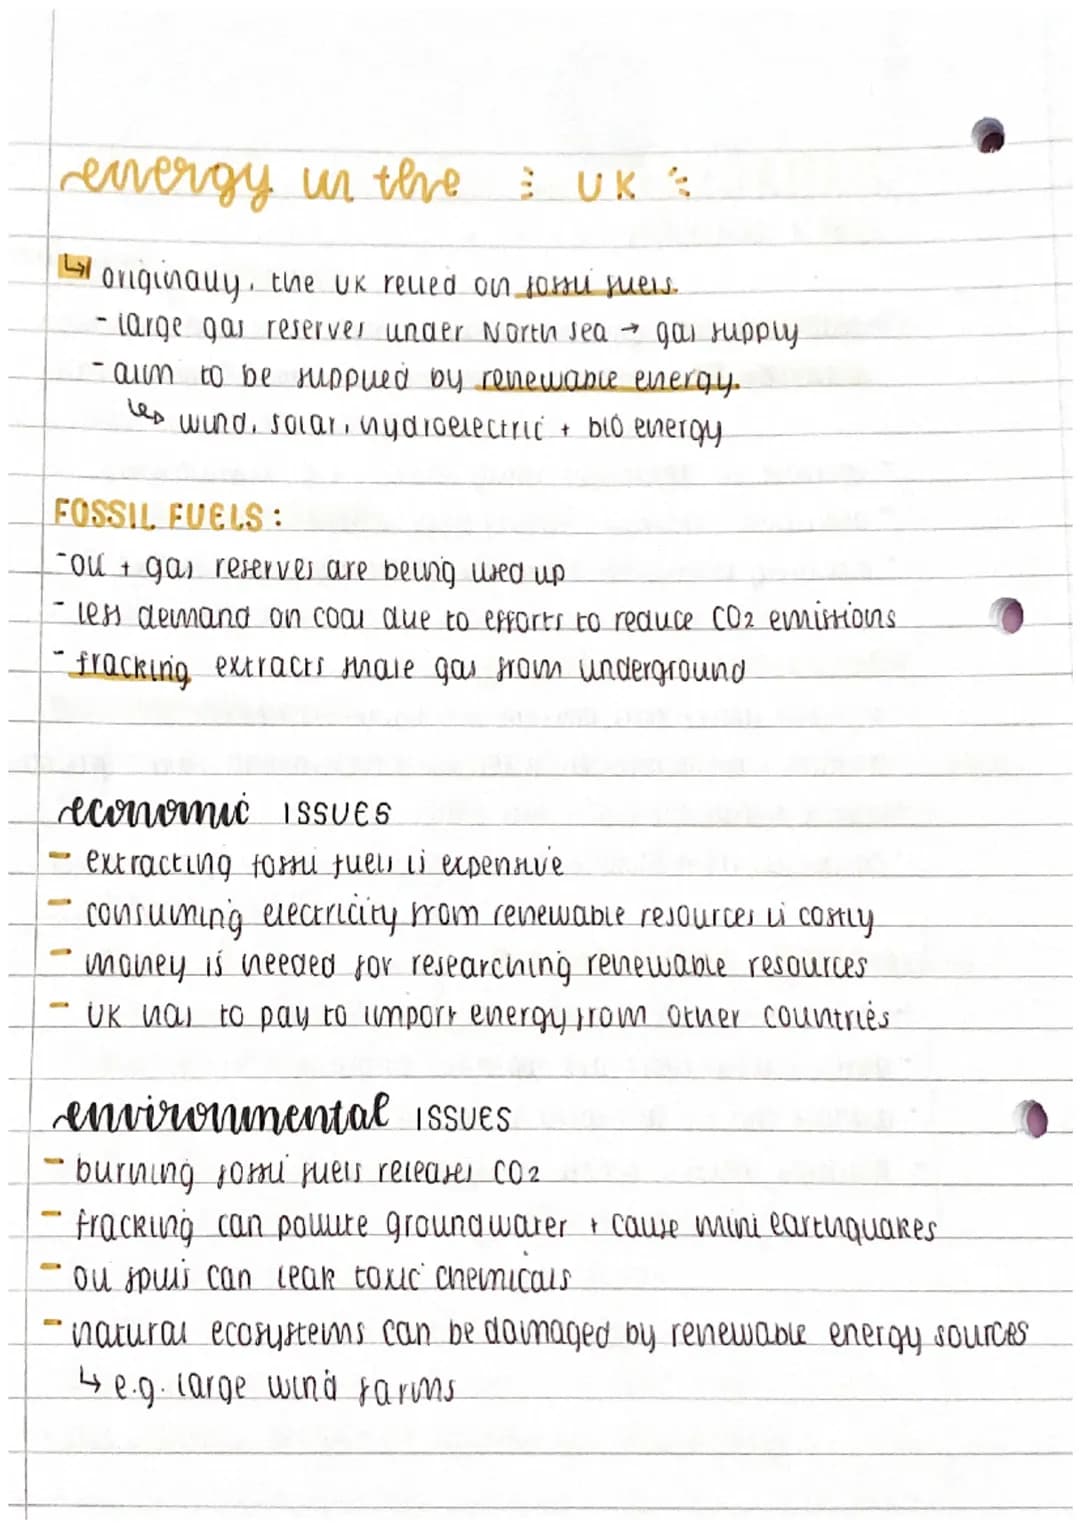 energy in the UK
↳ originally, the UK relied on fossil fuels.
- large gas reserves under North Sea → gas supply
- aim to be supplied by renewable energy.
↳ wind, solar, hydroelectric + bio energy
FOSSIL FUELS:
- oil + gas reserves are being used up
- less demand on coal due to efforts to reduce CO2 emissions
- fracking extracts shale gas from underground
economic ISSUES
- extracting fossil fuels is expensive
- consuming electricity from renewable resources is costly
- money is needed for researching renewable resources
- UK has to pay to import energy from other countries
environmental ISSUES
- burning fossil fuels releases CO2
- fracking can pollute groundwater + cause mini earthquakes
- oil spills can leak toxic chemicals
- natural ecosystems can be damaged by renewable energy sources
↳ e.g. large wind farms